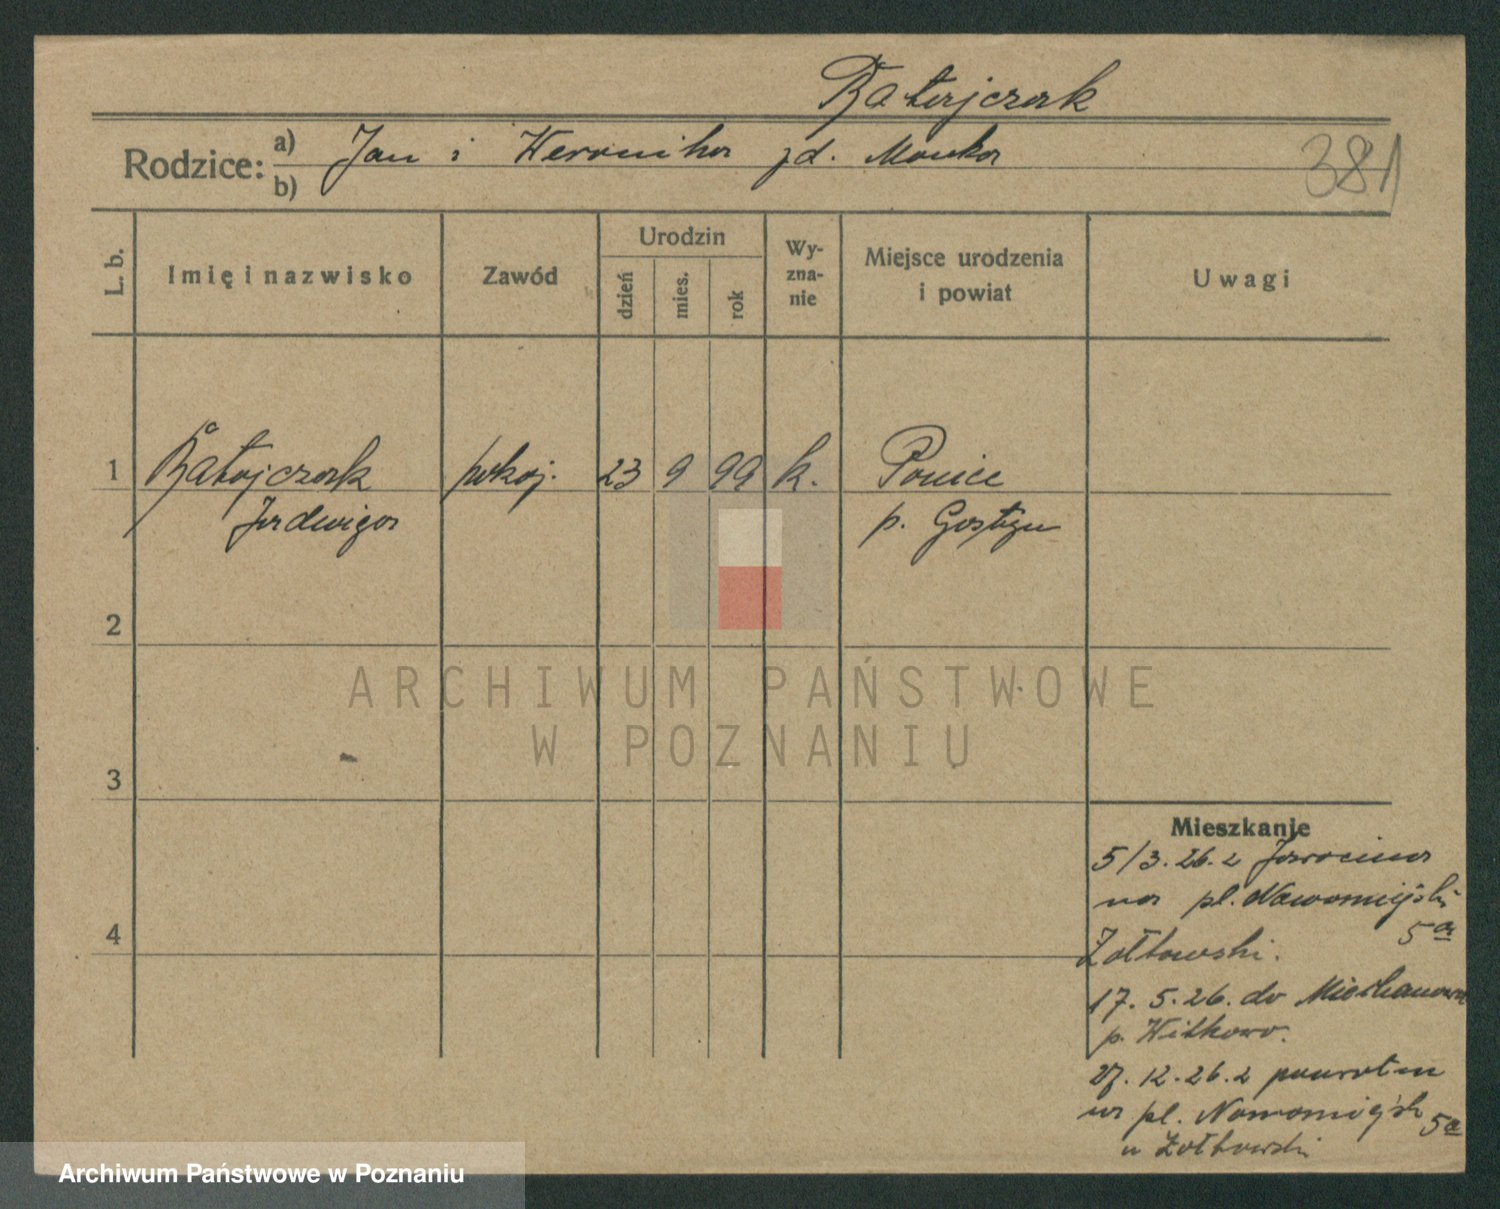 Ratajczak
Rodzice: a) Jan i Weronika zd. Manka
b)
381
L. b.
Imię i nazwisko
Zawód
Urodzin
dzień
mies.
rok
Wy-
zna-
nie
Miejsce urodzenia
i powiat
Uwagi
1 Ratajczak pokoj. 23 9 99 k. Ponice
Jadwiga p. Gostyn
2
3
4
ARCHIWUM PAŃSTWOWE
W POZNANIU
Mieszkanie
5/3.26. z Jarocina
na pl. Nowomiejski
5a
Żółtowski.
17. 5. 26. do
p. Witkowo.
27. 12. 26. z powrotem
na pl. Nowomiejsk 5a
u Żółtowski
Archiwum Państwowe w Poznaniu